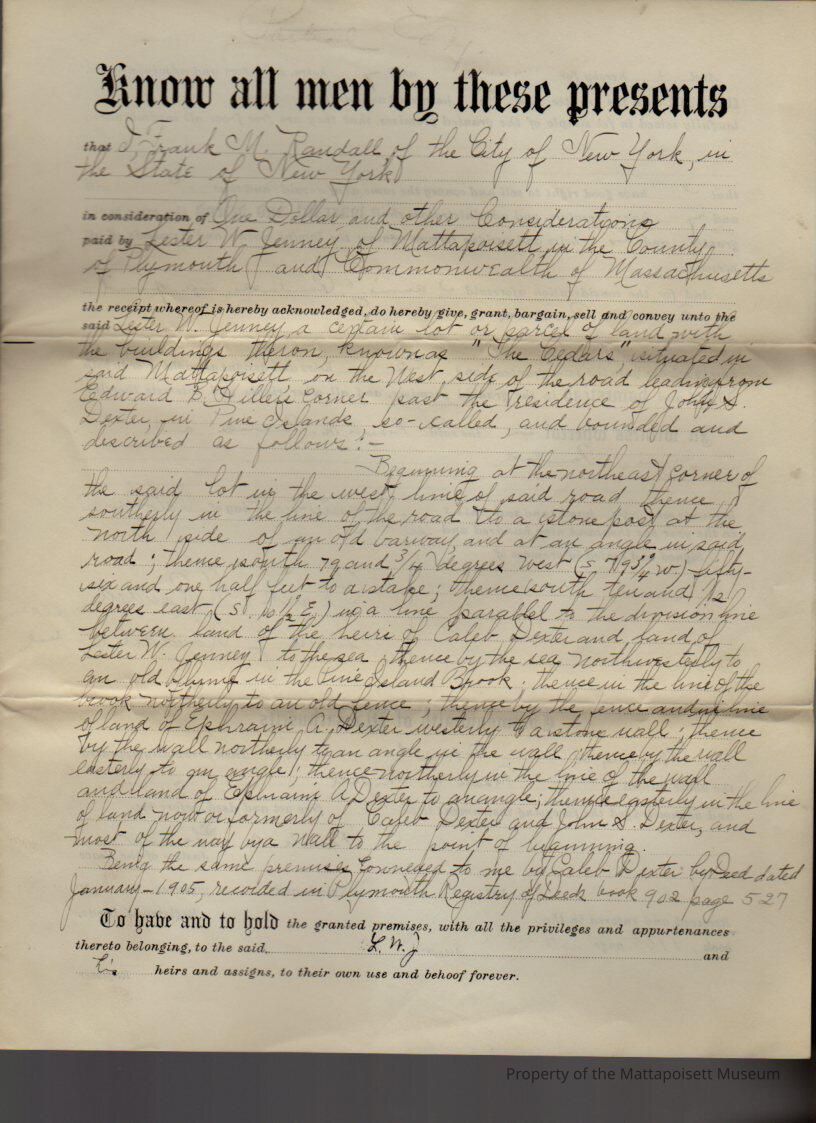 Know all men by these presents
that I, Frank M. Randall, of the City of New York, in
the State of New York
in consideration of One Dollar and other Considerations
paid by Lester W. Jenney, of Mattapoisett in the County
of Plymouth and Commonwealth of Massachusetts
the receipt whereof is hereby acknowledged, do hereby give, grant, bargain, sell and convey unto the
said Lester W. Jenney a certain lot or parcel of land with
the buildings theron, known as "The Cedars" situated in
said Mattapoisett on the West side of the road leading from
Edward B. Hiller's Corner past the residence of John S.
Dexter, in Pine Islands, so-called, and bounded and
described as follows:-
Beginning at the northeast corner of
the said lot in the west line of said road thence
southerly in the line of the road to a stone post at the
north side of an old barway, and at an angle in said
road; thence south 79 and 3/4 degrees west (S 79 3/4° W) fifty-
six and one half feet to a stake; thence south ten and 1/2
degrees east (S. 10 1/2° E.) in a line parallel to the division line
between land of the heirs of Caleb Dexter and land of
Lester W. Jenney to the sea, thence by the sea northwesterly to
an old in the Pine Island Brook; thence in the line of the
brook northerly to an old fence; thence by the fence and in line
of land of Ephraim A. Dexter westerly to a stone wall; thence
by the wall northerly to an angle in the wall, thence by the wall
easterly to an angle; thence northerly in the line of the wall
and land of Ephraim A Dexter to an angle; thence easterly in the line
of land now or formerly of Caleb Dexter and John S. Dexter, and
most of the way by a wall to the point of beginning.
Being the same premises conveyed to me by Caleb Dexter by Deed dated
January - 1905, recorded in Plymouth Registry of Deeds book 902 page 527
To have and to hold the granted premises, with all the privileges and appurtenances
thereto belonging, to the said L. W. J and
his heirs and assigns, to their own use and behoof forever.
Property of the Mattapoisett Museum